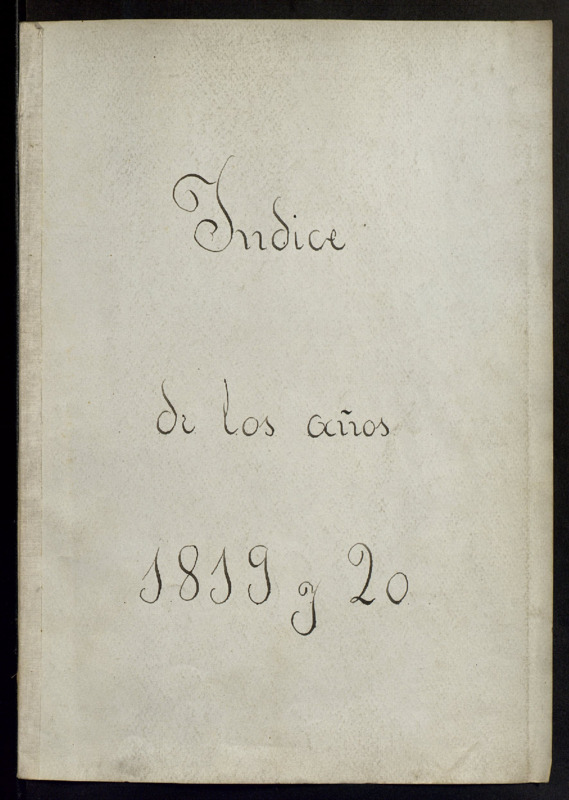 Indice
de los años
1819 y 20